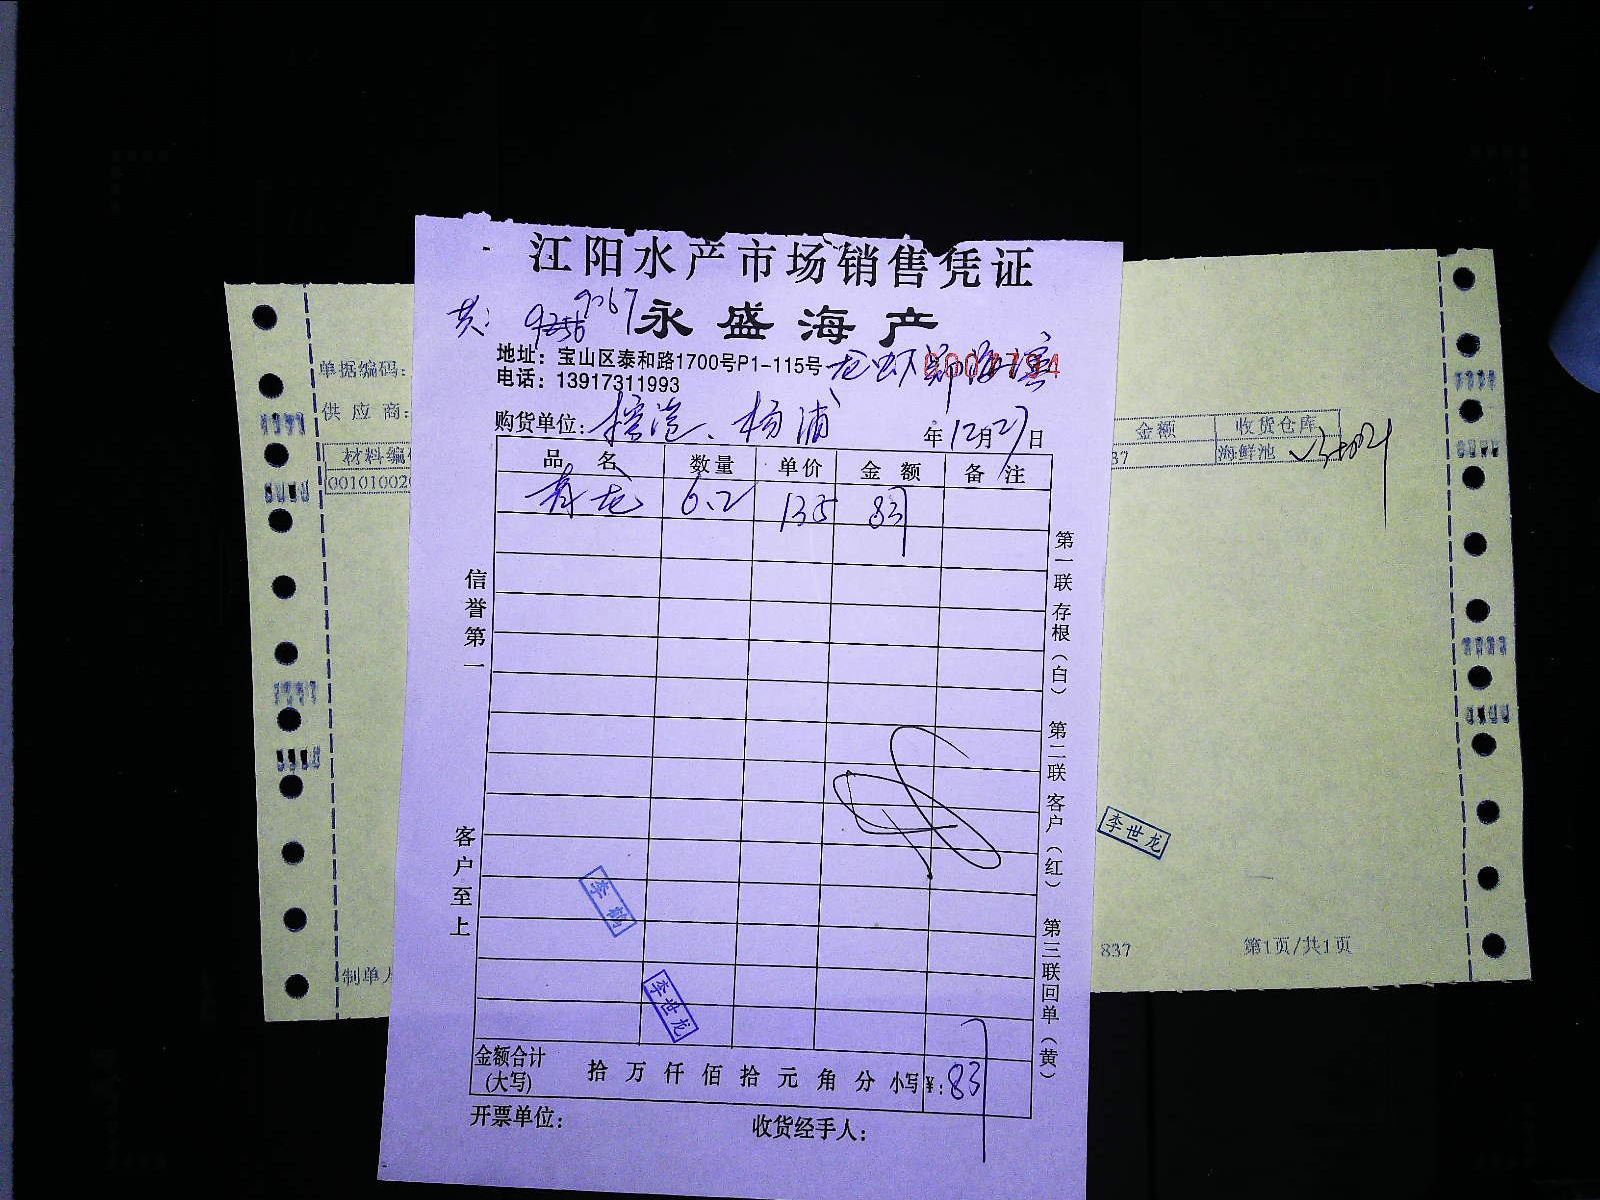 江阳水产市场销售凭证
共: 9067
永盛海产
地址：宝山区泰和路1700号P1-115号
电话：13917311993
购货单位： 杨浦
年12月27日
品名 数量 单价 金额 备注
青龙 6.2 135 837
信誉第一
客户至上
第一联存根（白） 第二联客户（红） 第三联回单（黄）
金额合计
(大写) 拾 万 仟 佰 拾 元 角 分 小写¥:837
开票单位： 收货经手人：
李世龙
单据编码:
供应商:
材料编
00101002
金额 收货仓库
37 海鲜池
李世龙
制单人
837 第1页/共1页